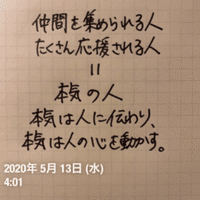 仲間を集められる人
たくさん応援される人
=
本気の人
本気は人に伝わり、
本気は人の心を動かす。
2020年 5月 13日 (水)
4:01